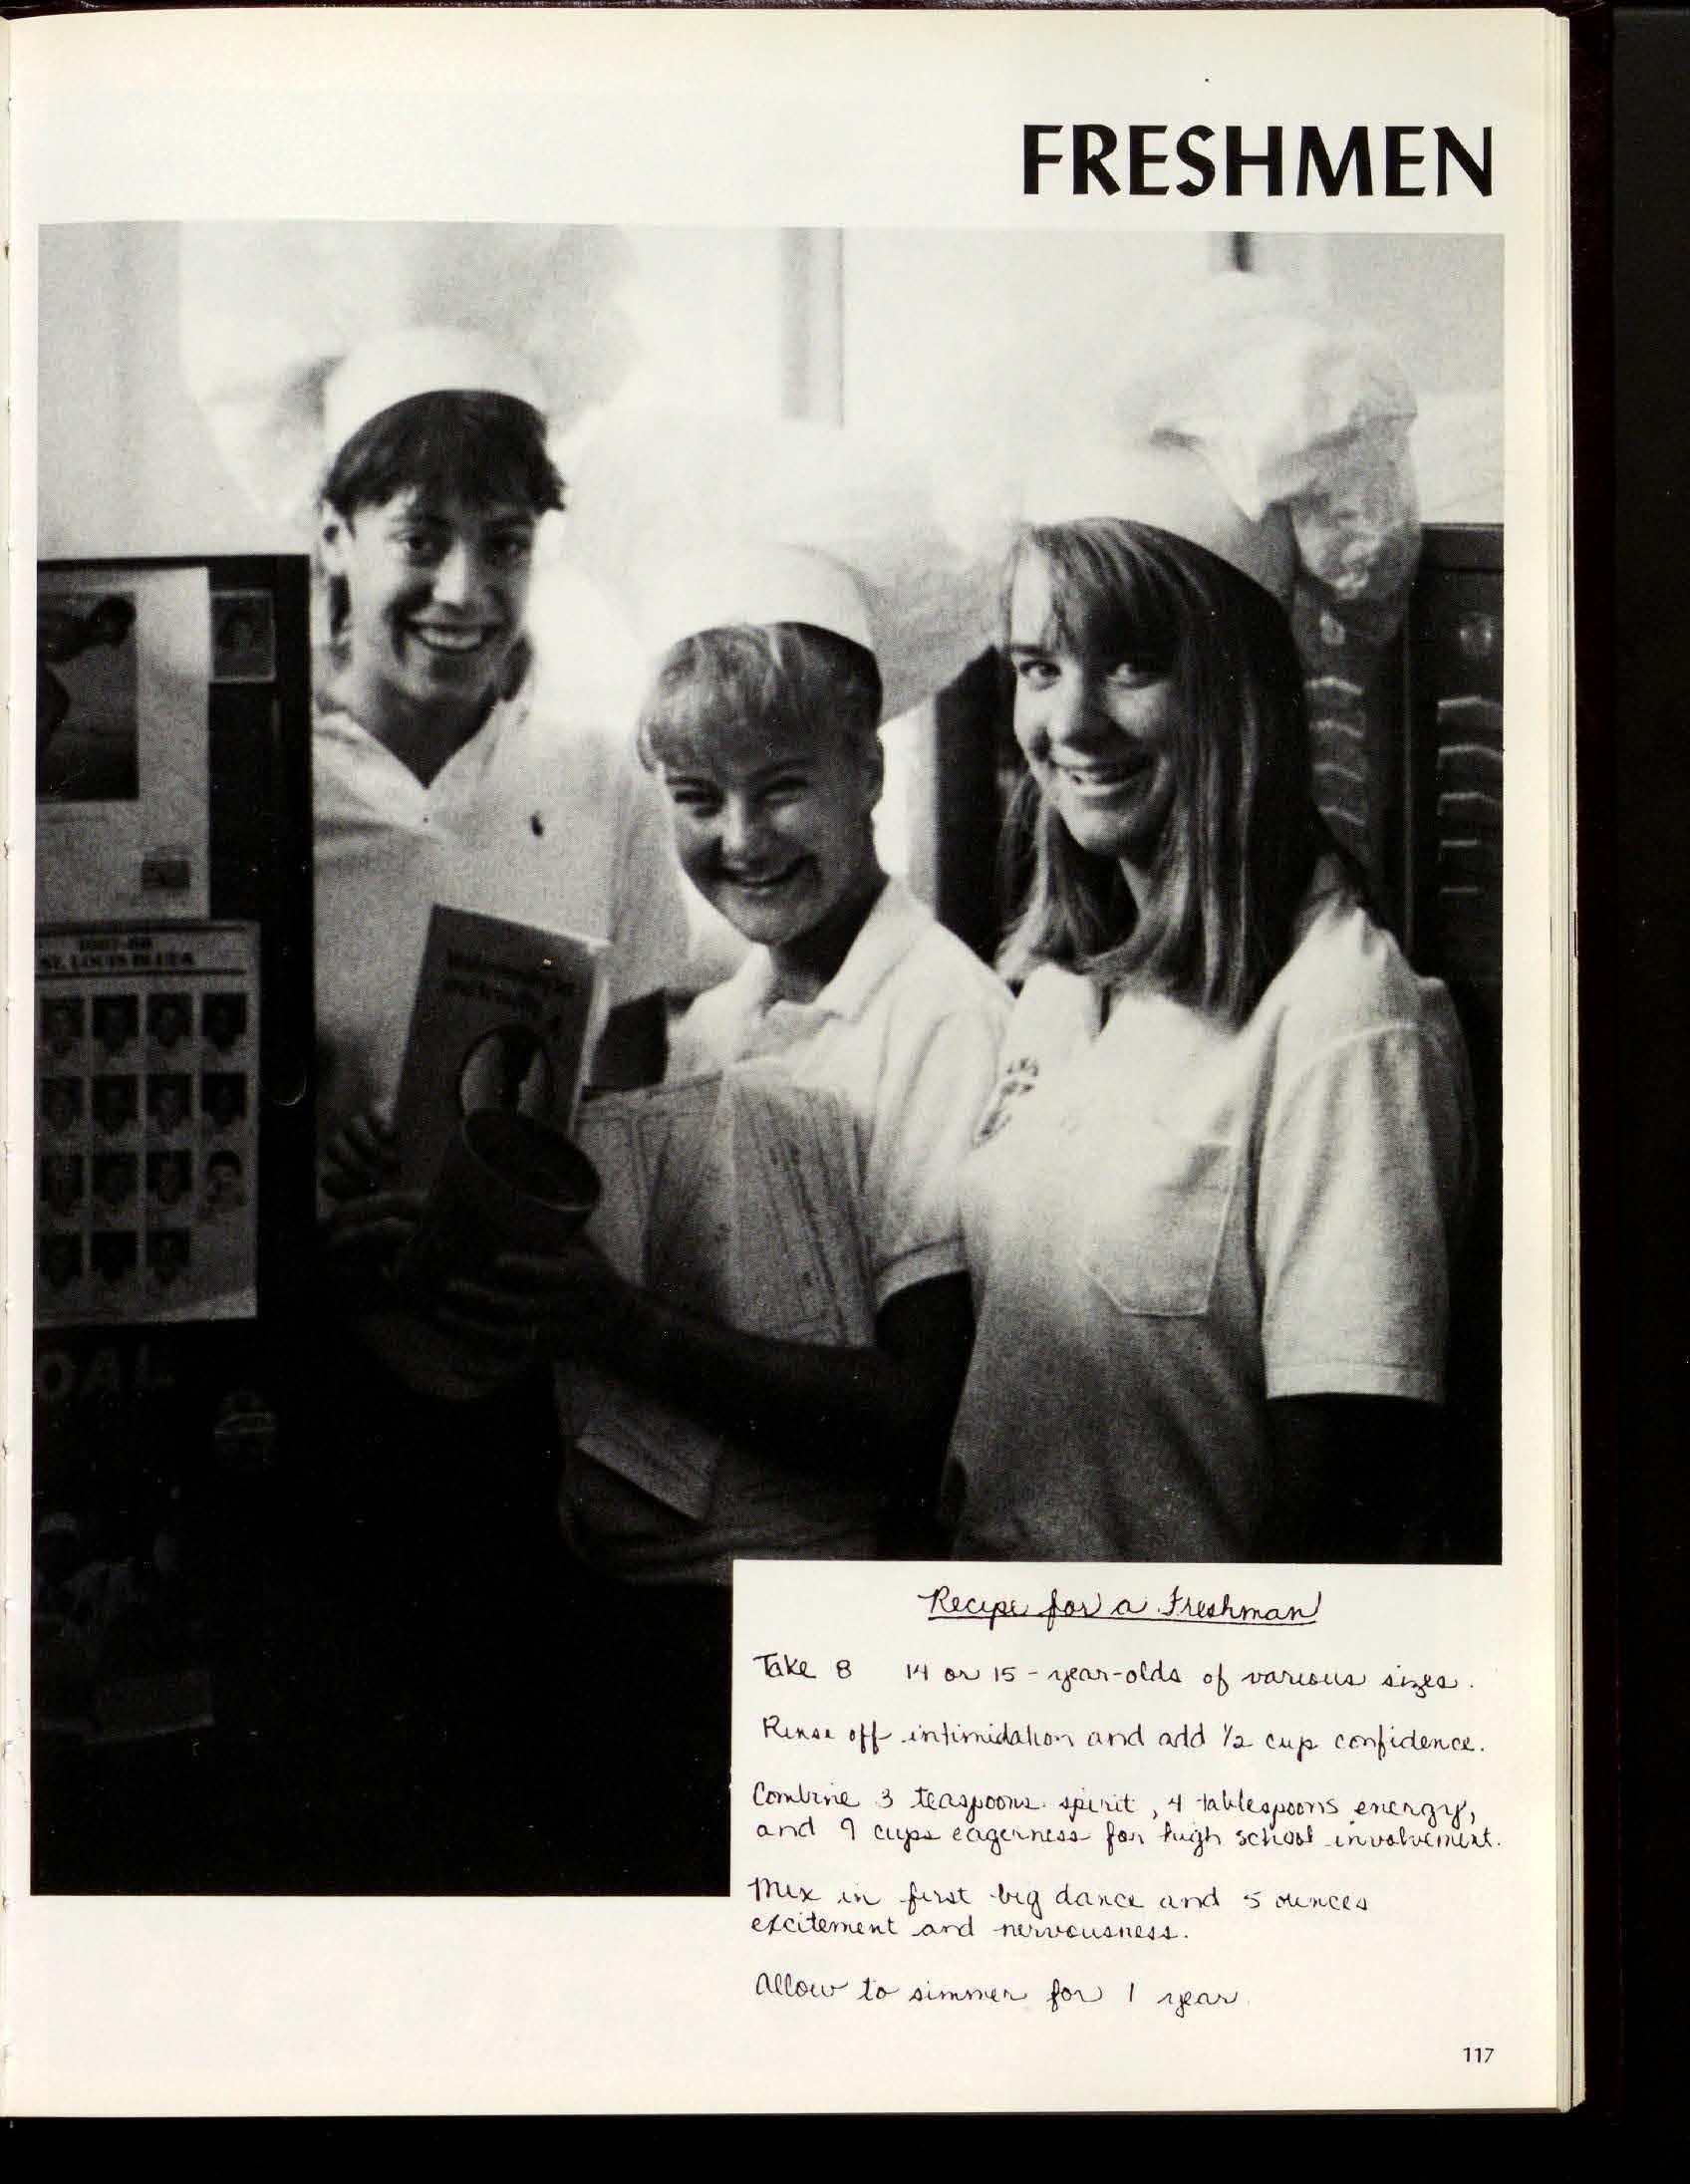 FRESHMEN
1987-88
ST. LOUIS BLUES
OAL
Recipe for a Freshman
Take 8 14 or 15-year-olds of various sizes.
Rinse off intimidation and add 1/2 cup confidence.
Combine 3 teaspoons spirit, 4 tablespoons energy,
and 9 cups eagerness for high school involvement.
Mix in first big dance and 5 ounces
excitement and nervousness.
Allow to simmer for 1 year.
117